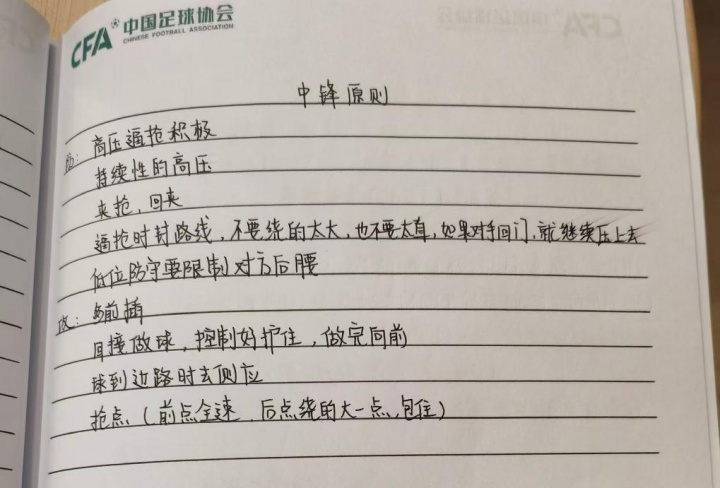 CFA 中国足球协会
CHINESE FOOTBALL ASSOCIATION
中锋原则
防：高压逼抢积极
持续性的高压
夹抢，回夹
逼抢时封路线，不要绕的太大，也不要太直，如果对手回门，就继续压上去
低位防守要限制对方后腰
攻：前插
回接做球，控制好护住，做完向前
球到边路时去侧应
抢点（前点全速，后点绕的大一点，包住）